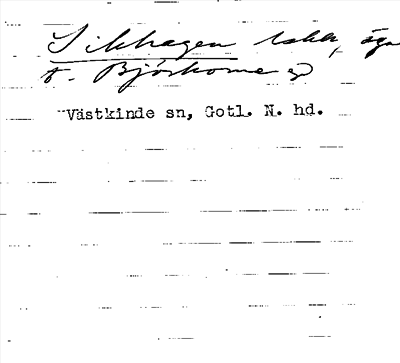 Silkhagen åker, äga
t. Björkome
Västkinde sn, Gotl. N. hd.